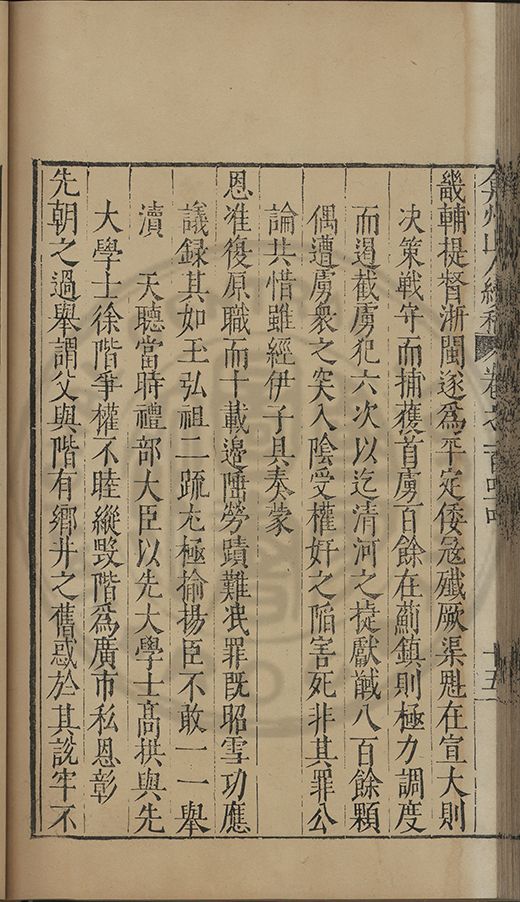 弇州山人續稿 卷之一百四 十五
畿輔提督浙閩遂爲平定倭寇殲厥渠魁在宣大則
决策戰守而捕獲首虜百餘在薊鎮則極力調度
而遏截虜犯六次以迄清河之㨗獻馘八百餘顆
偶遭虜衆之突入陰受權奸之陷害死非其罪公
論共惜雖經伊子具奏蒙
恩准復原職而十載邊陲勞蹟難泯罪既昭雪功應
議録其如王弘祖二疏尤極揄揚臣不敢一一舉
瀆 天聽當時禮部大臣以先大學士髙拱與先
大學士徐階爭權不睦縱毀階爲廣市私恩彰
先朝之過舉謂父與階有鄉井之舊惑於其說牢不